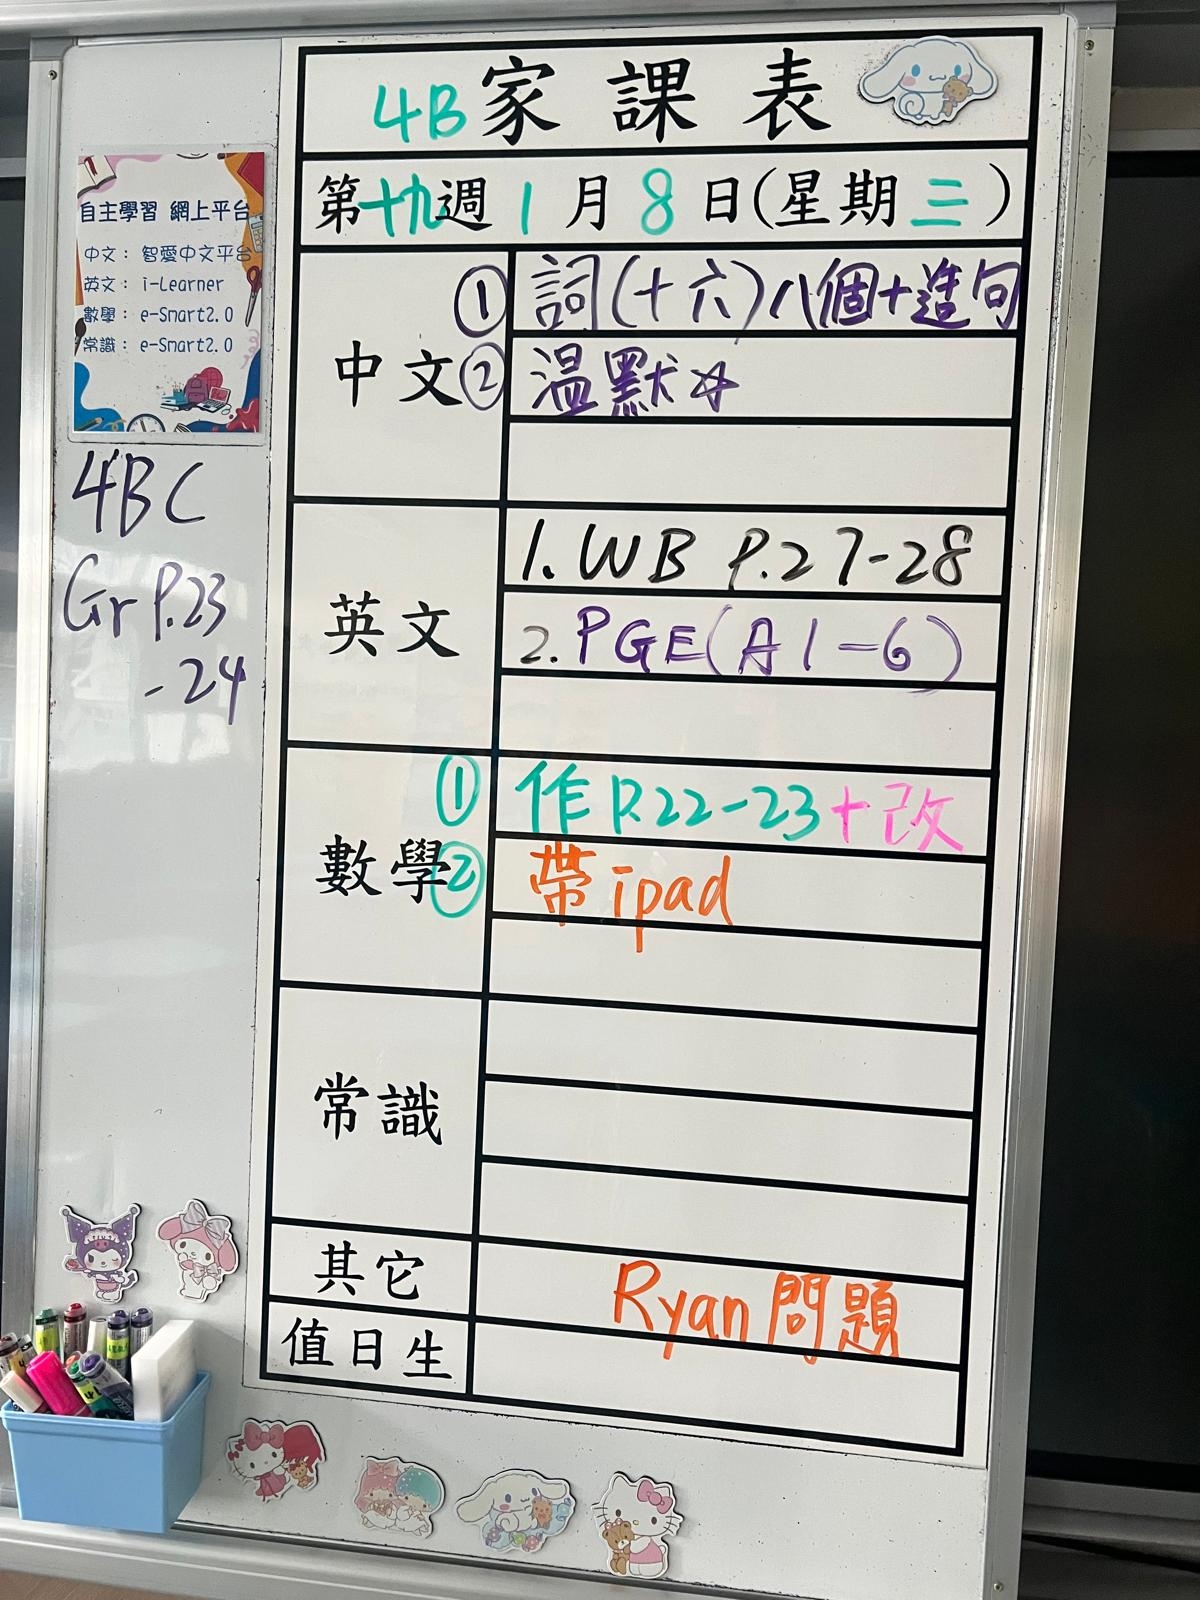 4B家課表
第十九週1月8日(星期三)
自主學習 網上平台
中文： 智愛中文平台
英文： i-Learner
數學： e-Smart2.0
常識： e-Smart2.0
4BC
Gr P.23
-24
中文
① 詞(十六)八個+造句
② 溫默☆
英文
1. WB P.27-28
2. PGE(A1-6)
數學
① 作P.22-23+改
② 帶ipad
常識
其它
Ryan 問題
值日生